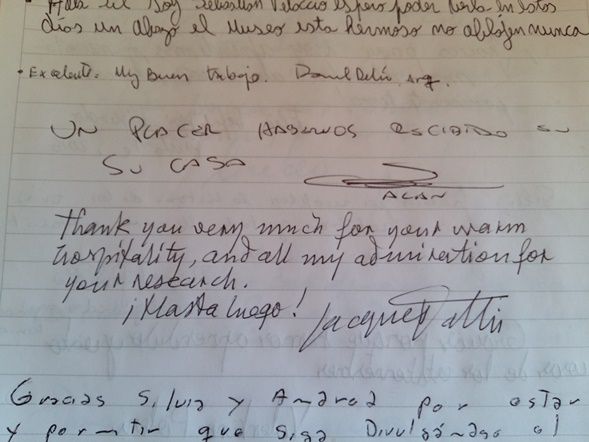 Soy Sebastian Velaccio espero poder verla en estos
días un Abrazo el Museo esta hermoso no aflojen nunca
• Excelente. Muy Buen trabajo. Daniel Arq.
UN PLACER HABERNOS RECIBIDO EN
SU CASA
ALAN
Thank you very much for your warm
hospitality, and all my admiration for
your research.
¡Hasta luego! Jacques
Gracias Silvia y Andrea por estar
y permitir que siga Divulgándo el